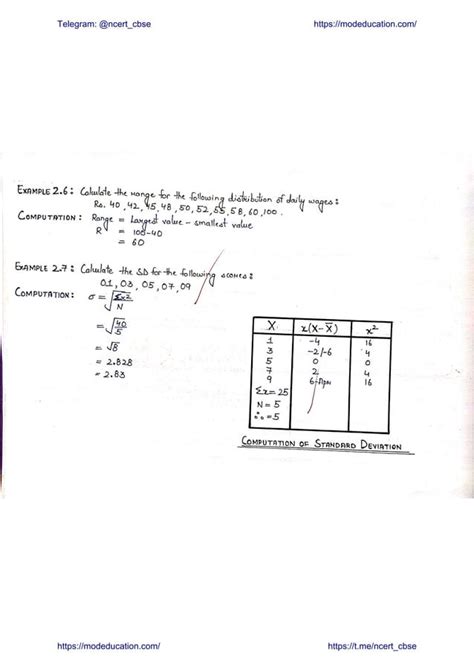 Telegram: @ncert_cbse https://modeducation.com/
EXAMPLE 2.6: Calculate the range for the following distribution of daily wages:
Rs. 40, 42, 45, 48, 50, 52, 55, 58, 60, 100.
COMPUTATION: Range = Largest value - smallest value
R = 100-40
= 60
EXAMPLE 2.7: Calculate the SD for the following scores:
01, 03, 05, 07, 09
COMPUTATION: σ = √Σx2/N
= √40/5
= √8
= 2.828
= 2.83
X x(X-X̅) x²
1 -4 16
3 -2/-6 4
5 0 0
7 2 4
9 16
Σx = 25
N = 5
∴ = 5
COMPUTATION OF STANDARD DEVIATION
https://modeducation.com/ https://t.me/ncert_cbse